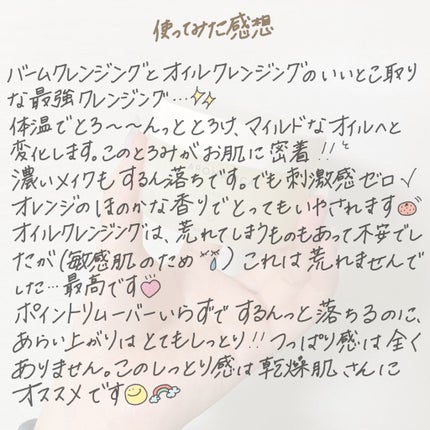 使ってみた感想
バームクレンジングとオイルクレンジングのいいとこ取り
な最強クレンジング…✨
体温でとろ〜〜んっととろけ、マイルドなオイルへと
変化します。このとろみがお肌に密着!!
濃いメイクもするん落ちです。でも刺激感ゼロ✓
オレンジのほのかな香りでとってもいやされます🍊
オイルクレンジングは、荒れてしまうものもあって不安でし
たが(敏感肌のため)これは荒れませんで
した…最高です💗
ポイントリムーバーいらずでするんっと落ちるのに、
あらい上がりはとてもしっとり!!つっぱり感は全く
ありません。このしっとり感は乾燥肌さんに
オススメです🙂🌈